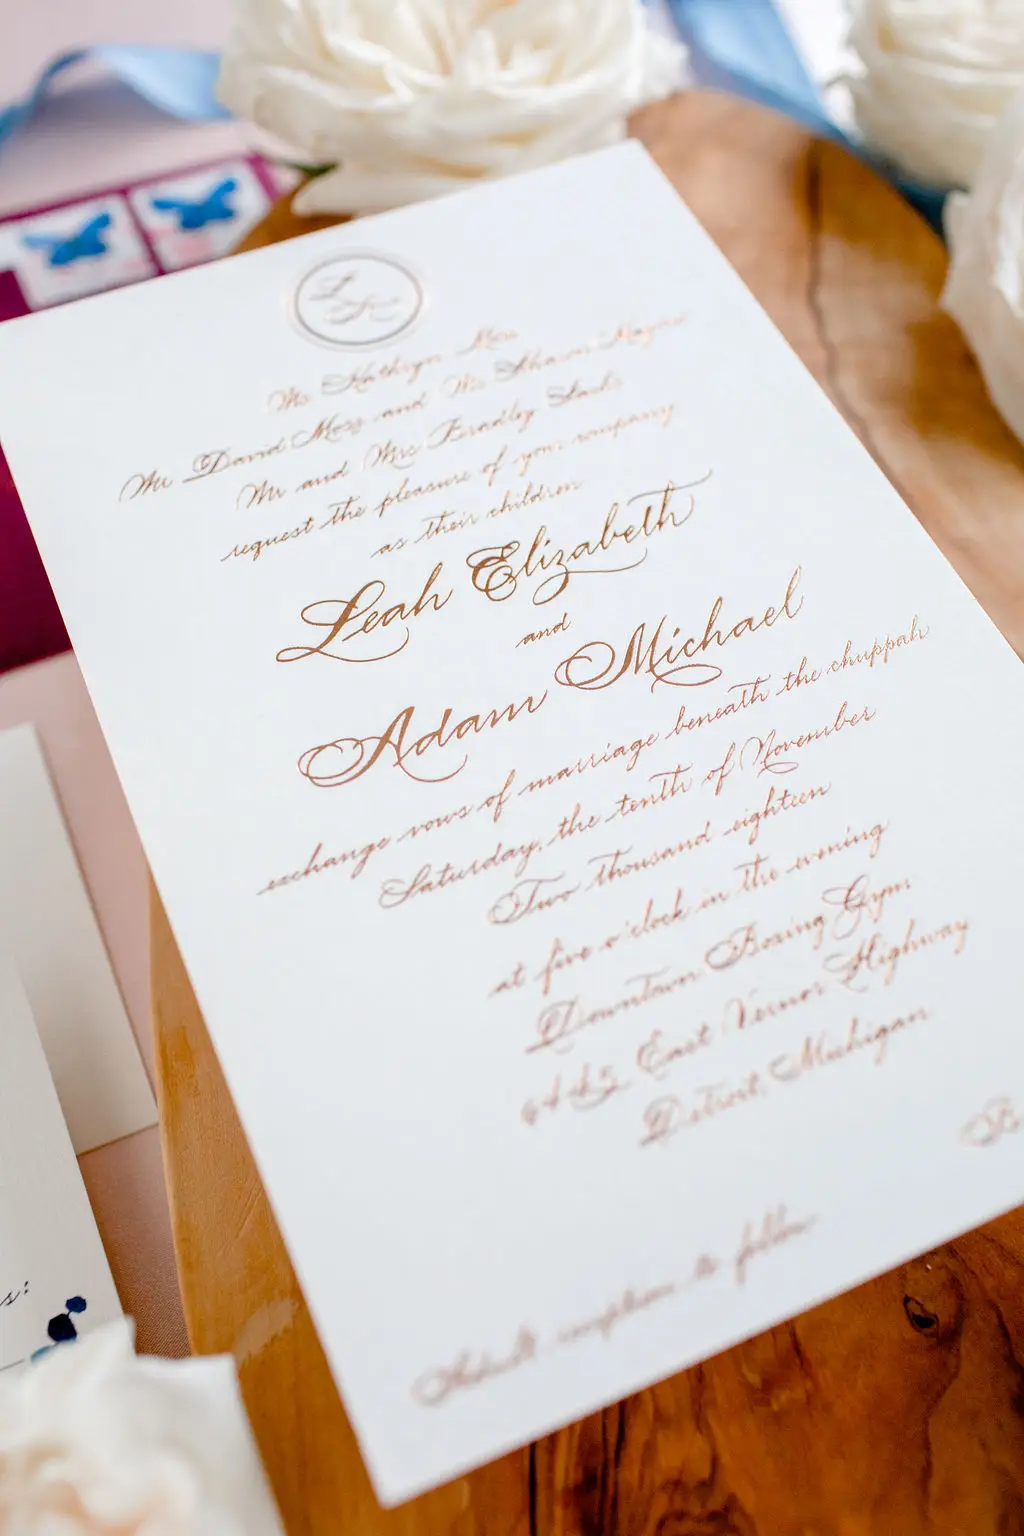 L
A
Ms Kathryn Moss
Mr David Moss and Ms Sharon Mayers
Mr and Mrs Bradley Sachs
request the pleasure of your company
as their children
Leah Elizabeth
and
Adam Michael
exchange vows of marriage beneath the chuppah
Saturday, the tenth of November
Two thousand eighteen
at five o'clock in the evening
Downtown Boxing Gym
6445 East Vernor Highway
Detroit, Michigan
B
reception to follow
s: